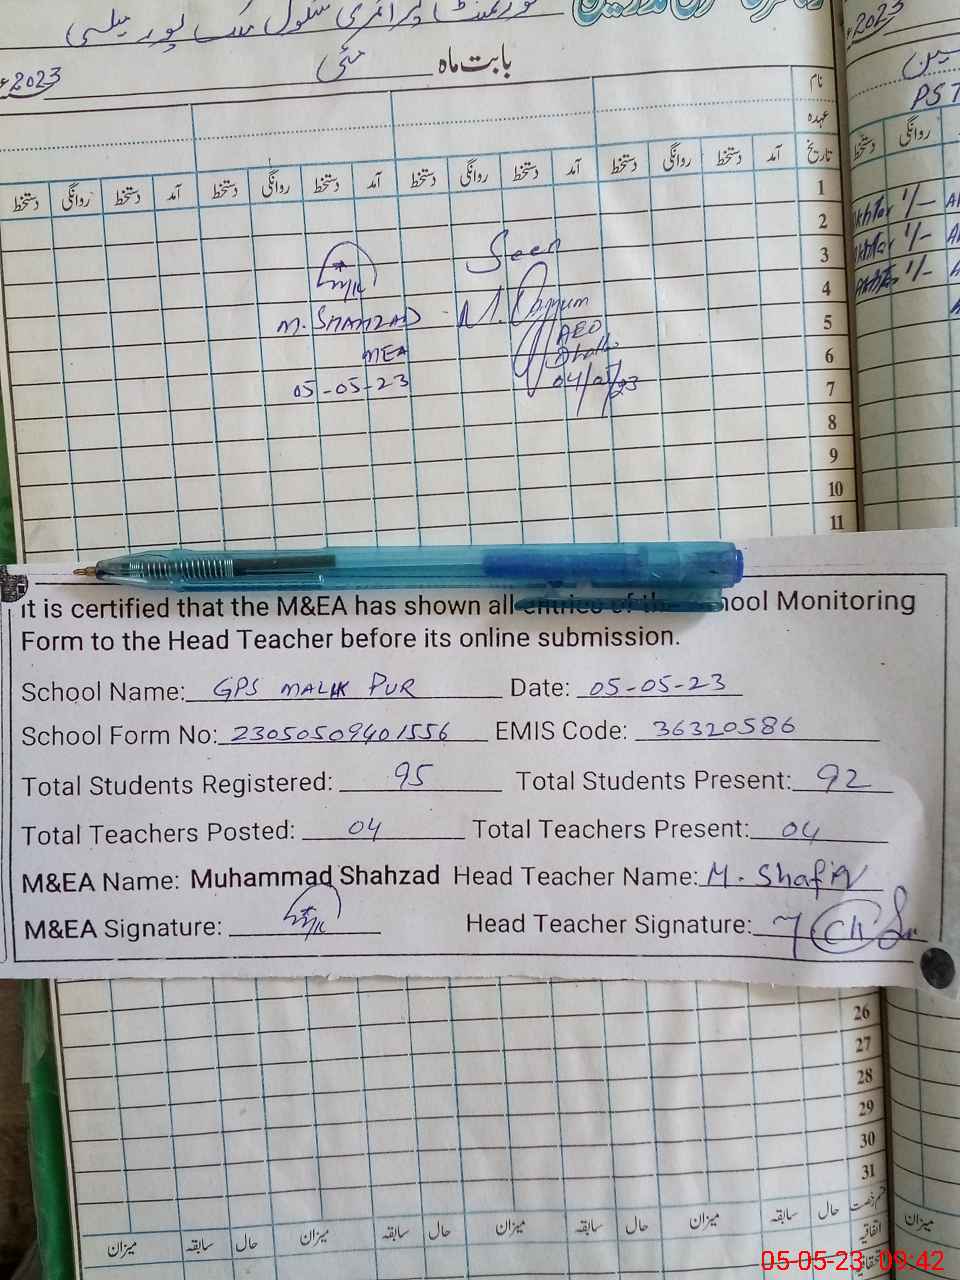 گورنمنٹ پرائمری سکول ملک پور میلسی
بابت ماہ مئی 2023ء
نام
عہدہ
تاریخ آمد دستخط روانگی دستخط آمد دستخط روانگی دستخط آمد دستخط روانگی دستخط آمد دستخط روانگی دستخط
1
2
3
4
5
6
7
8
9
10
11
Seen
M. Qayyum
AEO
04/05/23
M. SHAHZAD
MEA
05-05-23
2023
PST
روانگی دستخط
Akhtar
Akhtar
Akhtar
It is certified that the M&EA has shown all entries of the School Monitoring
Form to the Head Teacher before its online submission.
School Name: GPS MALIK PUR Date: 05-05-23
School Form No: 23050509401556 EMIS Code: 36320586
Total Students Registered: 95 Total Students Present: 92
Total Teachers Posted: 04 Total Teachers Present: 04
M&EA Name: Muhammad Shahzad Head Teacher Name: M. Shafiq
M&EA Signature: Head Teacher Signature:
26
27
28
29
30
31
حال سابقہ میزان حال سابقہ میزان حال سابقہ میزان حال سابقہ میزان
اتفاقیہ
میزان
05-05-23 09:42